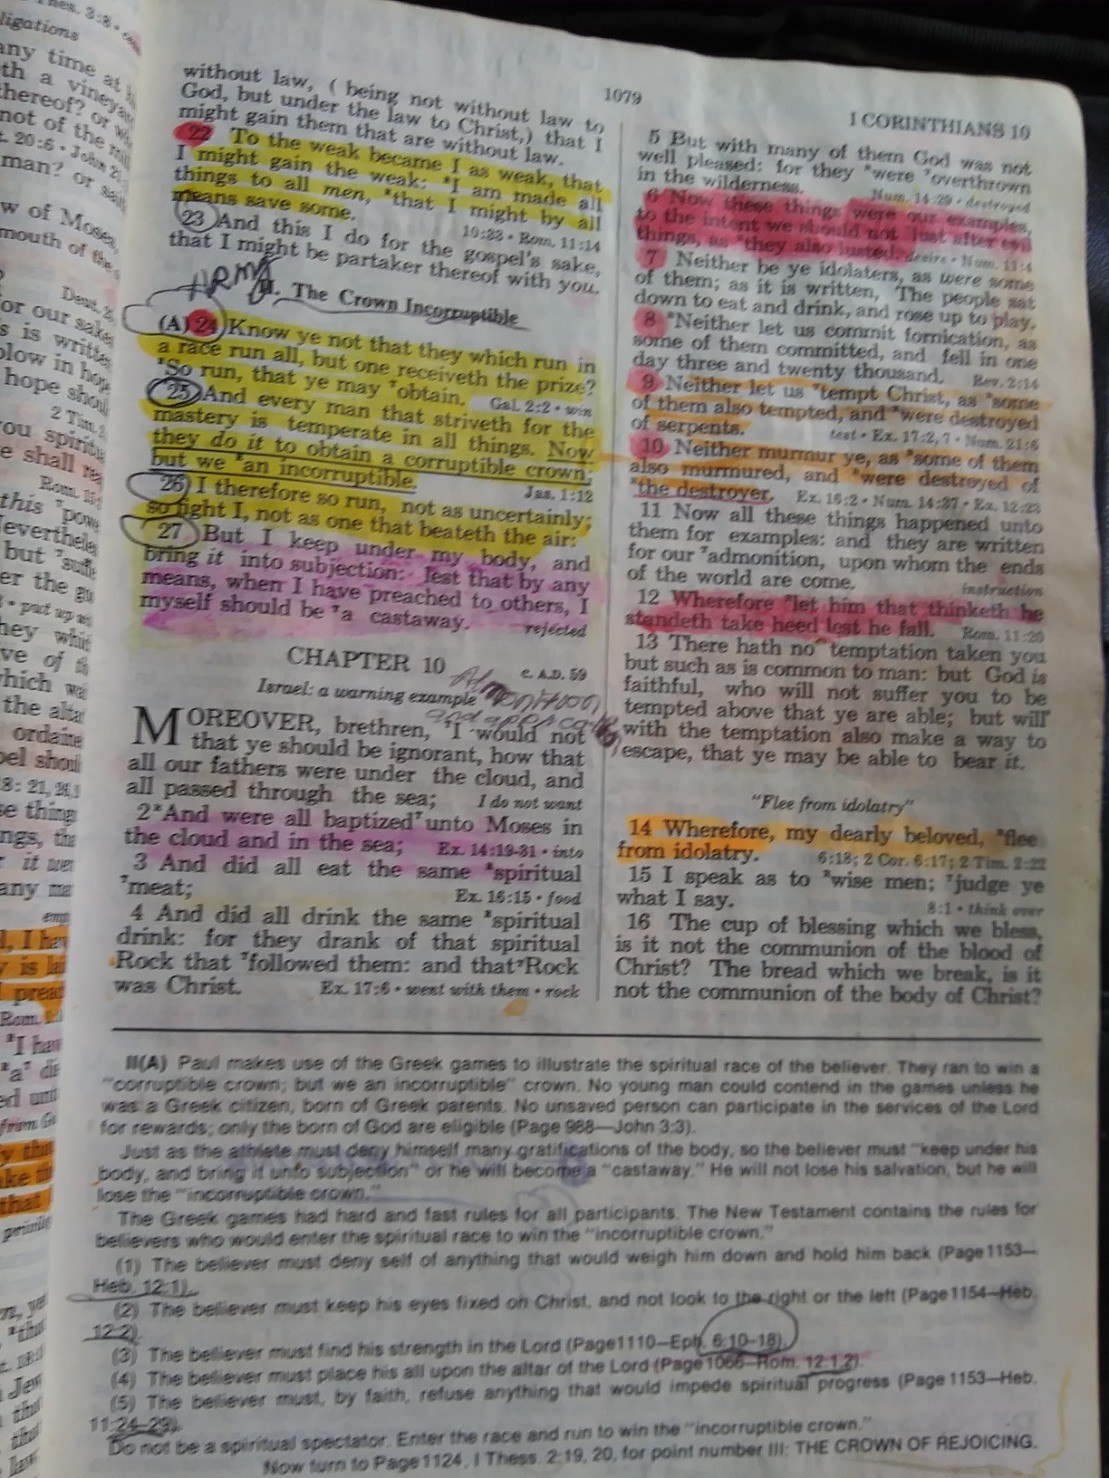 1079
I CORINTHIANS 10
without law, ( being not without law to
God, but under the law to Christ,) that I
might gain them that are without law.
22 To the weak became I as weak, that
I might gain the weak: *I am made all
things to all men, *that I might by all
means save some. 10:33 • Rom. 11:14
23 And this I do for the gospel's sake,
that I might be partaker thereof with you.
II. The Crown Incorruptible
(A) 24 Know ye not that they which run in
a race run all, but one receiveth the prize?
*So run, that ye may ʳobtain. Gal. 2:2 • win
25 And every man that striveth for the
mastery is temperate in all things. Now
they do it to obtain a corruptible crown;
but we *an incorruptible. Jas. 1:12
26 I therefore so run, not as uncertainly;
so fight I, not as one that beateth the air:
27 But I keep under my body, and
bring it into subjection: lest that by any
means, when I have preached to others, I
myself should be ʳa castaway. rejected
CHAPTER 10 C. A.D. 59
Israel: a warning example
MOREOVER, brethren, ʳI would not
that ye should be ignorant, how that
all our fathers were under the cloud, and
all passed through the sea; I do not want
2*And were all baptizedʳunto Moses in
the cloud and in the sea; Ex. 14:19-31 • into
3 And did all eat the same *spiritual
ʳmeat; Ex. 16:15 • food
4 And did all drink the same *spiritual
drink: for they drank of that spiritual
Rock that ʳfollowed them: and thatʳRock
was Christ. Ex. 17:6 • went with them • rock
5 But with many of them God was not
well pleased: for they *were ʳoverthrown
in the wilderness. Num. 14:29 • destroyed
6 Now these things were our examples,
to the intent we should not lust after evil
things, as *they also lusted. desire • Num. 11:4
7 Neither be ye idolaters, as were some
of them; as it is written, *The people sat
down to eat and drink, and rose up to play.
8 *Neither let us commit fornication, as
some of them committed, and fell in one
day three and twenty thousand. Rev. 2:14
9 Neither let us ʳtempt Christ, as *some
of them also tempted, and *were destroyed
of serpents. test • Ex. 17:2,7 • Num. 21:6
10 Neither murmur ye, as *some of them
also murmured, and *were destroyed of
*the destroyer. Ex. 16:2 • Num. 14:37 • Ex. 12:23
11 Now all these things happened unto
them for examples: and they are written
for our ʳadmonition, upon whom the ends
of the world are come. instruction
12 Wherefore *let him that thinketh he
standeth take heed lest he fall. Rom. 11:20
13 There hath no temptation taken you
but such as is common to man: but God is
faithful, who will not suffer you to be
tempted above that ye are able; but will
with the temptation also make a way to
escape, that ye may be able to bear it.
"Flee from idolatry"
14 Wherefore, my dearly beloved, *flee
from idolatry. 6:18; 2 Cor. 6:17; 2 Tim. 2:22
15 I speak as to *wise men; ʳjudge ye
what I say. 8:1 • think over
16 The cup of blessing which we bless,
is it not the communion of the blood of
Christ? The bread which we break, is it
not the communion of the body of Christ?
II(A) Paul makes use of the Greek games to illustrate the spiritual race of the believer. They ran to win a
"corruptible crown; but we an incorruptible" crown. No young man could contend in the games unless he
was a Greek citizen, born of Greek parents. No unsaved person can participate in the services of the Lord
for rewards; only the born of God are eligible (Page 988—John 3:3).
Just as the athlete must deny himself many gratifications of the body, so the believer must "keep under his
body, and bring it unto subjection" or he will become a "castaway." He will not lose his salvation, but he will
lose the "incorruptible crown."
The Greek games had hard and fast rules for all participants. The New Testament contains the rules for
believers who would enter the spiritual race to win the "incorruptible crown."
(1) The believer must deny self of anything that would weigh him down and hold him back (Page 1153—
Heb. 12:1).
(2) The believer must keep his eyes fixed on Christ, and not look to the right or the left (Page 1154—Heb.
12:2).
(3) The believer must find his strength in the Lord (Page1110—Eph. 6:10-18).
(4) The believer must place his all upon the altar of the Lord (Page 1066—Rom. 12:1,2).
(5) The believer must, by faith, refuse anything that would impede spiritual progress (Page 1153—Heb.
11:24-29).
Do not be a spiritual spectator. Enter the race and run to win the "incorruptible crown."
Now turn to Page 1124, I Thess. 2:19, 20, for point number III: THE CROWN OF REJOICING.